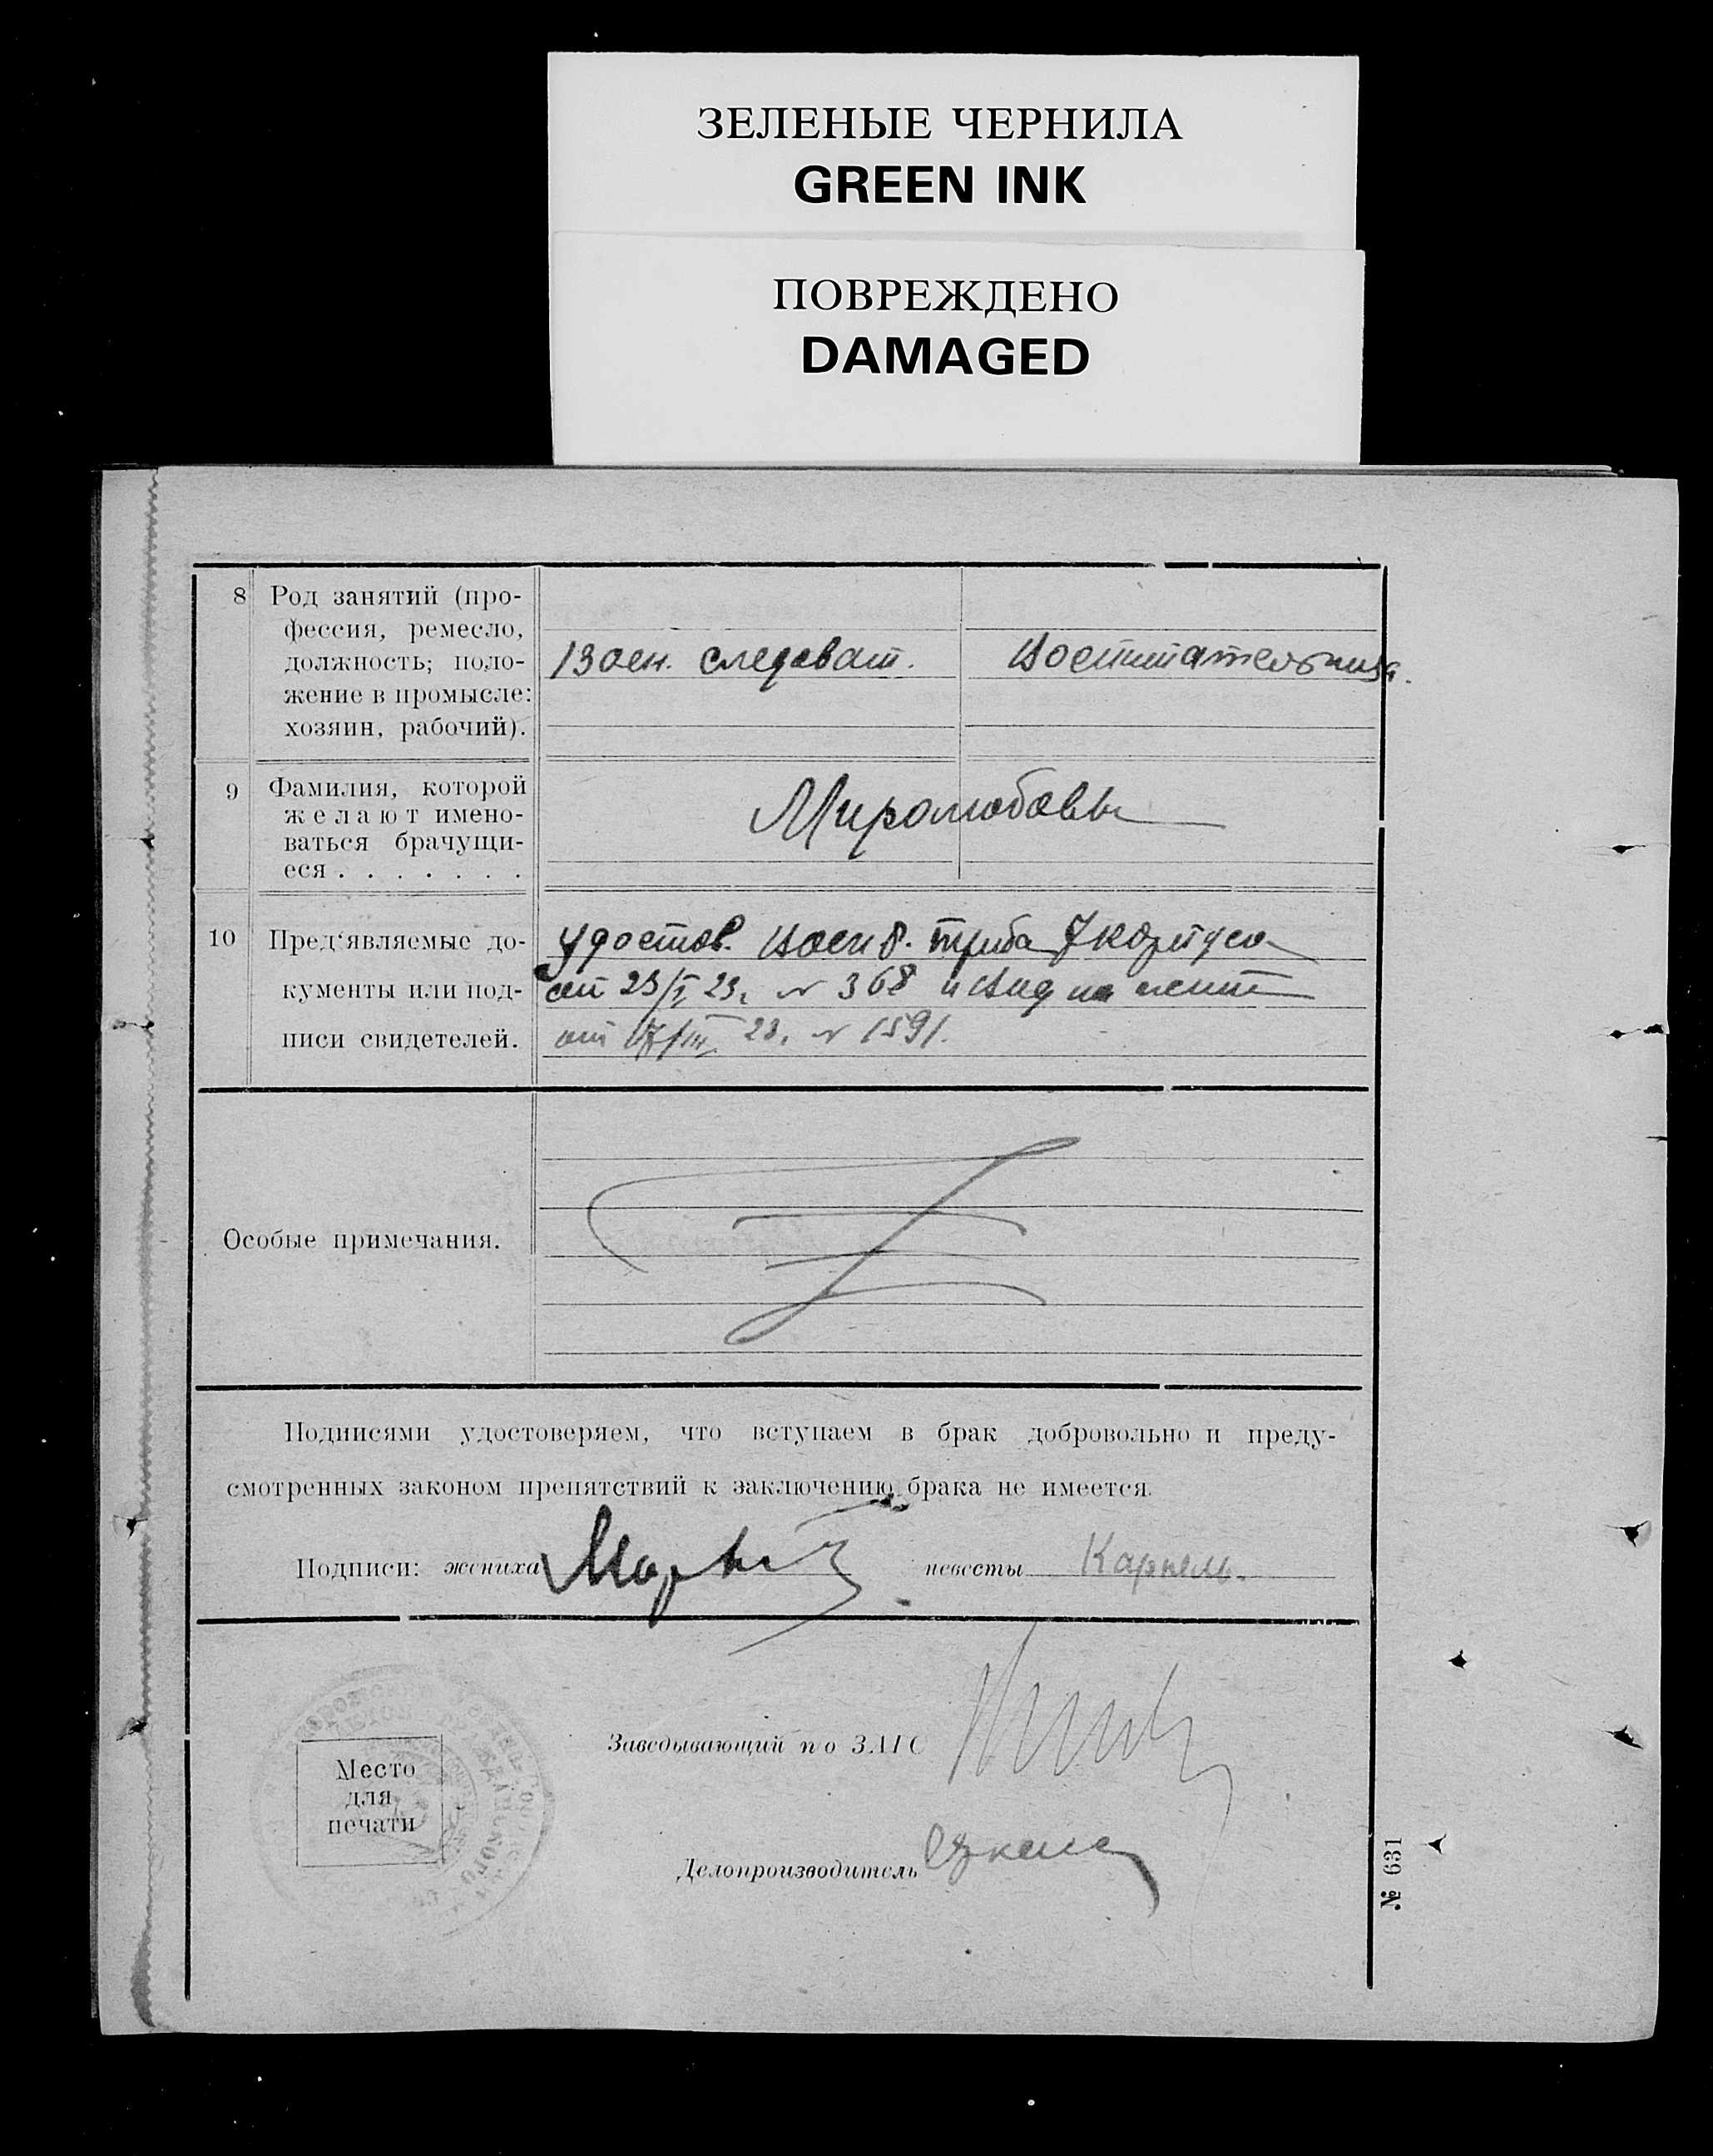 ЗЕЛЕНЫЕ ЧЕРНИЛА
GREEN INK
ПОВРЕЖДЕНО
DAMAGED
8 Род занятий (про-
фессия, ремесло,
должность; поло-
жение в промысле:
хозяин, рабочий).
Воен. следоват.
Воспитательница.
9 Фамилия, которой
желают имено-
ваться брачущи-
еся . . . . . . .
Миролюбовы
10 Пред'являемые до-
кументы или под-
писи свидетелей.
Удостов. Военв. триба 7 корпуса
от 23/I 23. № 368 и вид на жит
от 17/III 23. № 1591.
Особые примечания.
Подписями удостоверяем, что вступаем в брак добровольно и преду-
смотренных законом препятствий к заключению брака не имеется.
Подписи: жениха невесты Карпель.
Заведывающий по ЗАГС
Делопроизводитель
Место
для
печати
№ 631